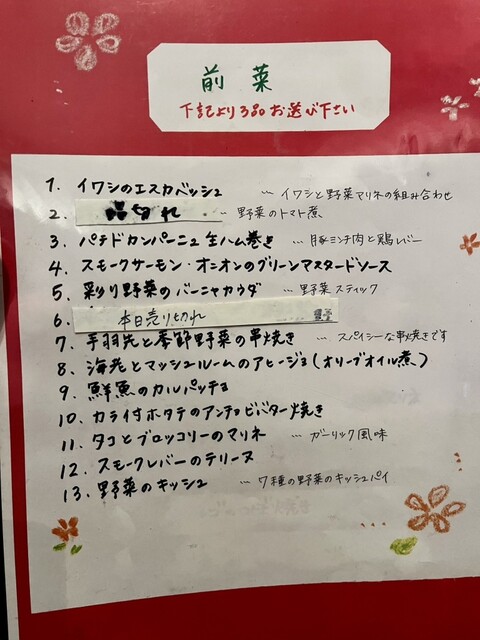 前菜
下記より3品お選び下さい
1. イワシのエスカベッシュ … イワシと野菜マリネの組み合わせ
2. 品切れ … 野菜のトマト煮
3. パテドカンパーニュ生ハム巻き … 豚ミンチ肉と鶏レバー
4. スモークサーモン・オニオンのグリーンマスタードソース
5. 彩り野菜のバーニャカウダ … 野菜スティック
6. 本日売り切れ
7. 手羽先と季節野菜の串焼き … スパイシーな串焼きです
8. 海老とマッシュルームのアヒージョ(オリーブオイル煮)
9. 鮮魚のカルパッチョ
10. カラ付ホタテのアンチョビバター焼き
11. タコとブロッコリーのマリネ … ガーリック風味
12. スモークレバーのテリーヌ
13. 野菜のキッシュ … 7種の野菜のキッシュパイ